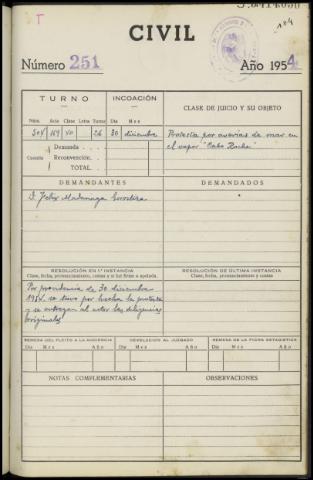 CIVIL
Número 251 Año 1954
TURNO INCOACIÓN CLASE DE JUICIO Y SU OBJETO
Núm. Auto Clase Letra Turno Día Mes
30 diciembre Protesta por averías de mar en
el vapor "Cabo Roche"
Demanda
Cuantía Reconvención
TOTAL
DEMANDANTES DEMANDADOS
D. Felix
RESOLUCIÓN EN 1.ª INSTANCIA RESOLUCIÓN DE ÚLTIMA INSTANCIA
Clase, fecha, pronunciamiento, costas y si fué firme o apelada. Clase, fecha, pronunciamiento y costas
Por providencia de 30 diciembre
1954, se tuvo por hecha la protesta
y se entregan al actor las diligencias
originales
REMESA DEL PLEITO A LA AUDIENCIA DEVOLUCIÓN AL JUZGADO REMESA DE LA FICHA ESTADÍSTICA
Día Mes Año Día Mes Año Día Mes Año
NOTAS COMPLEMENTARIAS OBSERVACIONES